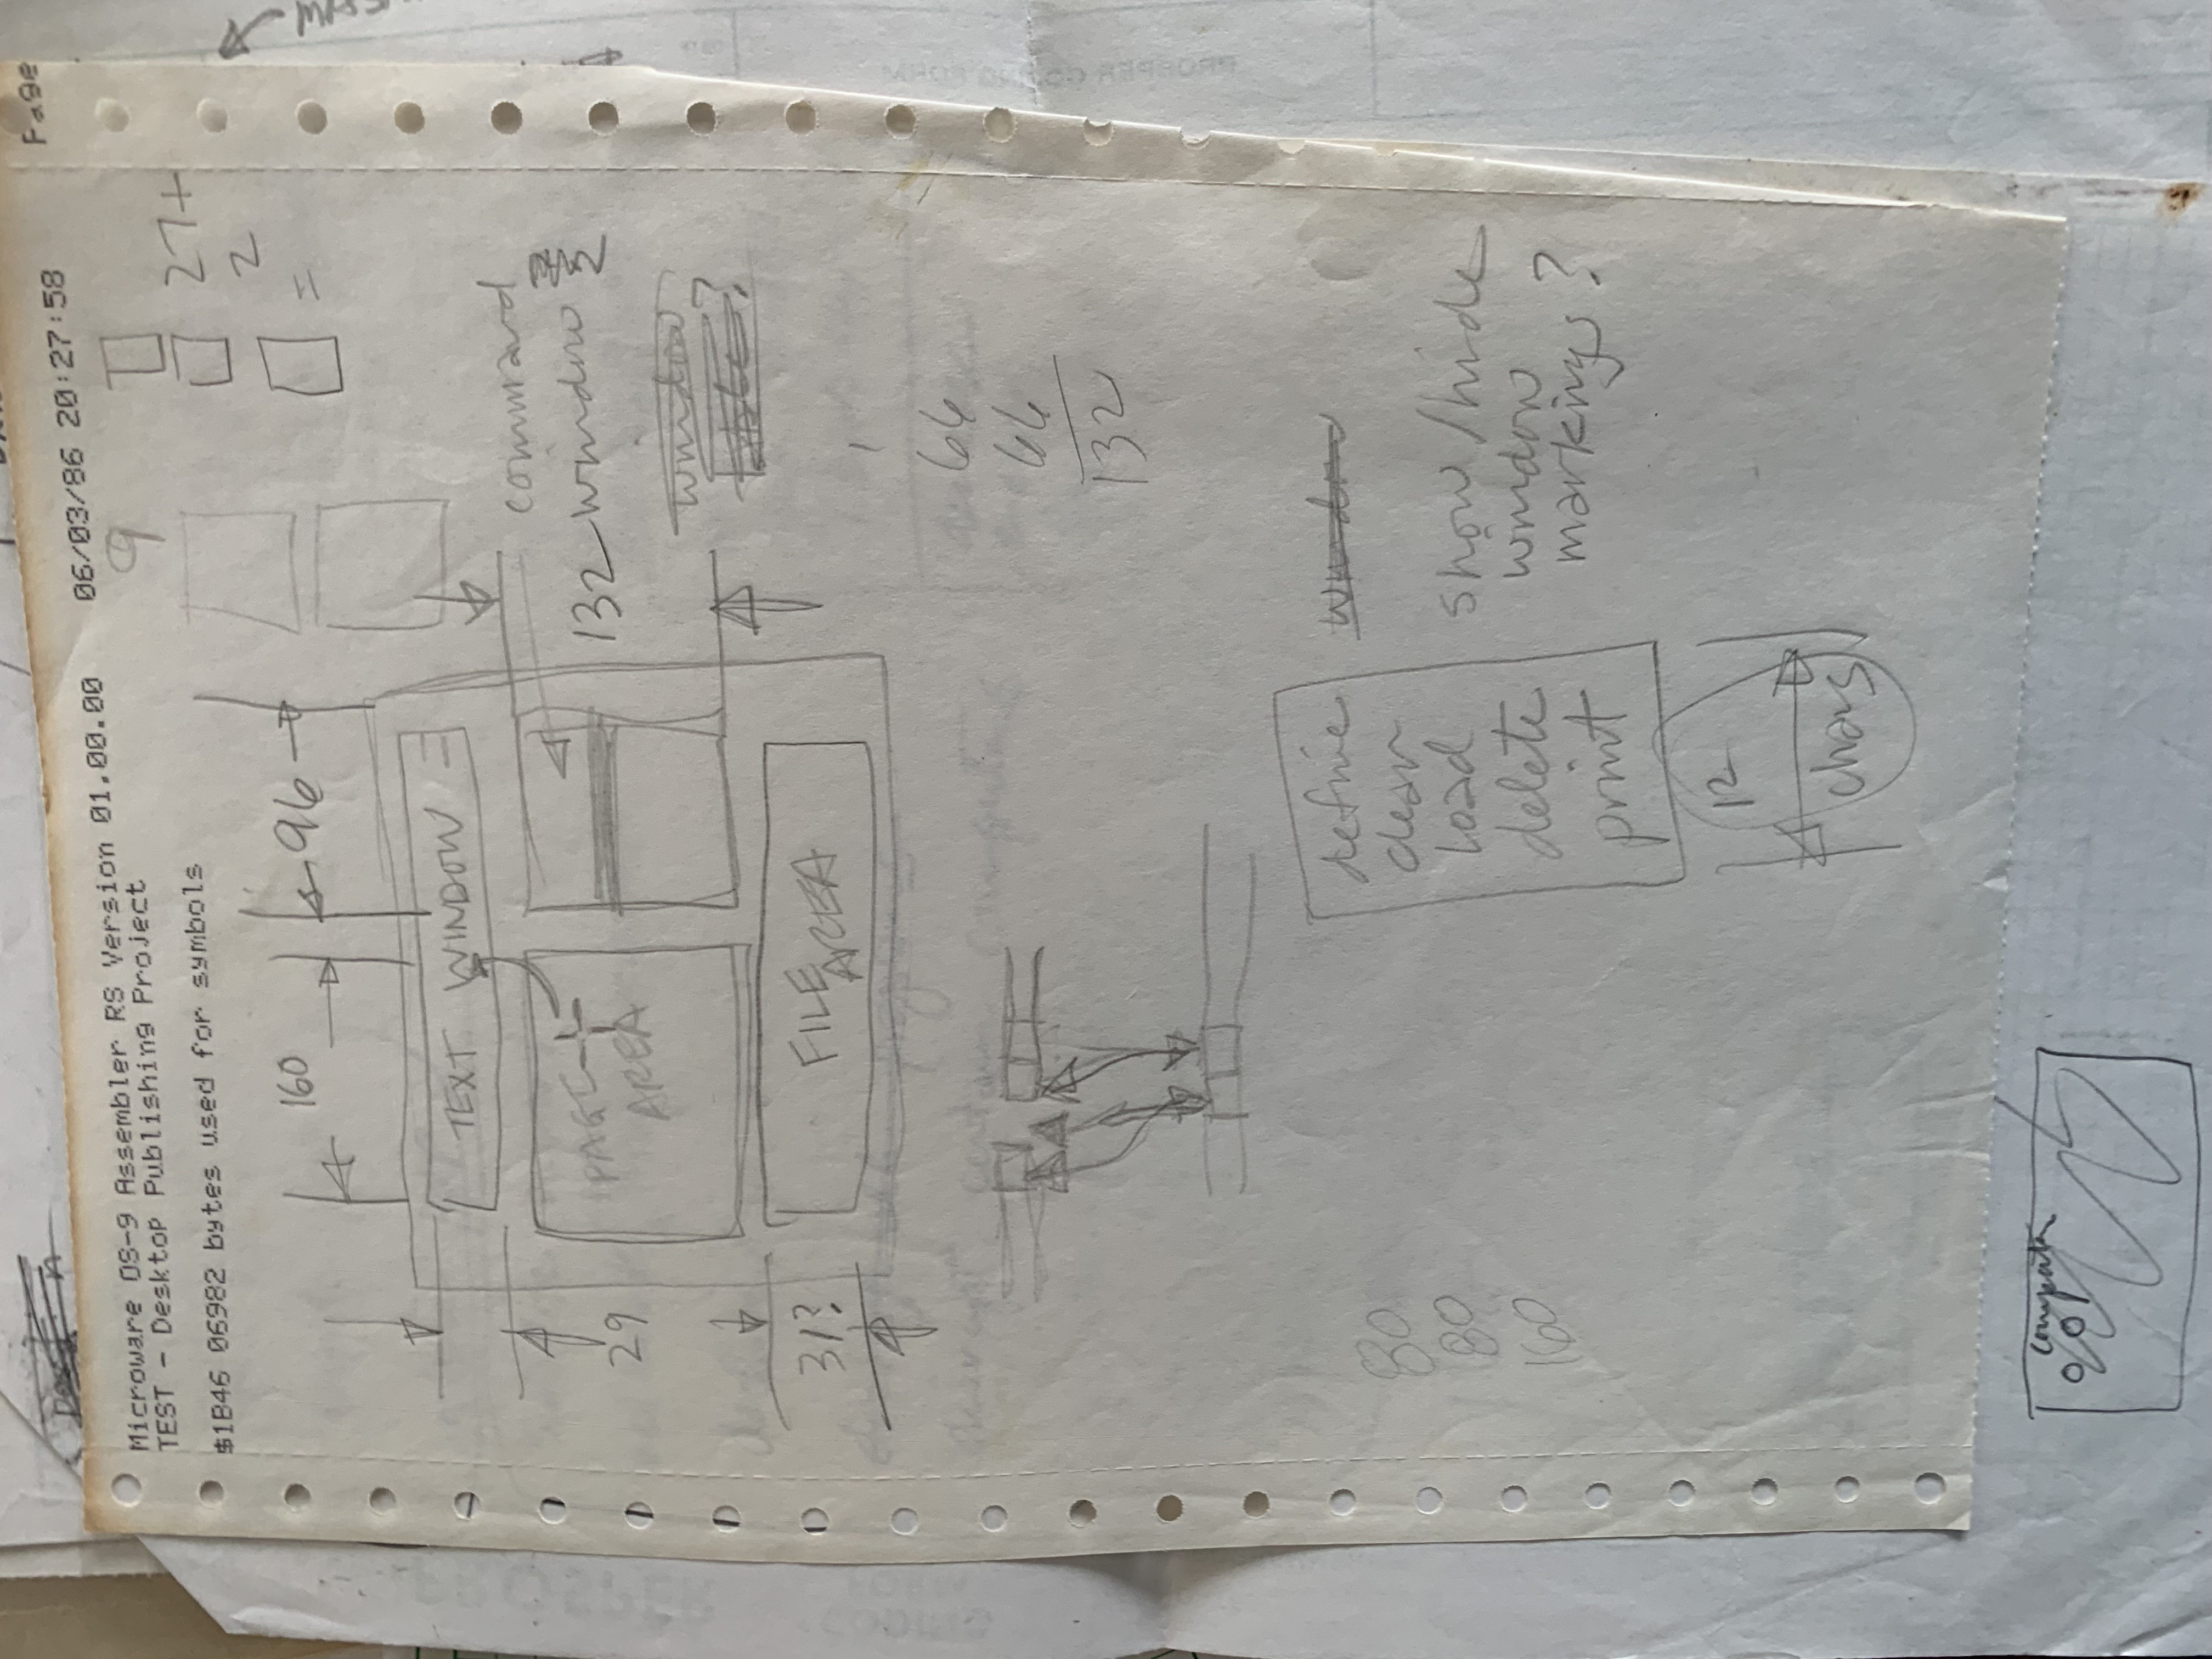 Page
Microware OS-9 Assembler RS Version 01.00.00 06/03/86 20:27:58
TEST - Desktop Publishing Project
$1B46 06982 bytes used for symbols
9
27+
2
=
160
96
TEXT WINDOW
command
132 window
PAGE
AREA
29
window
?
31?
FILE
AREA
66
66
132
80
80
160
define
clear
load
delete
print
window
show/hide
window
markings?
12
chars
computer